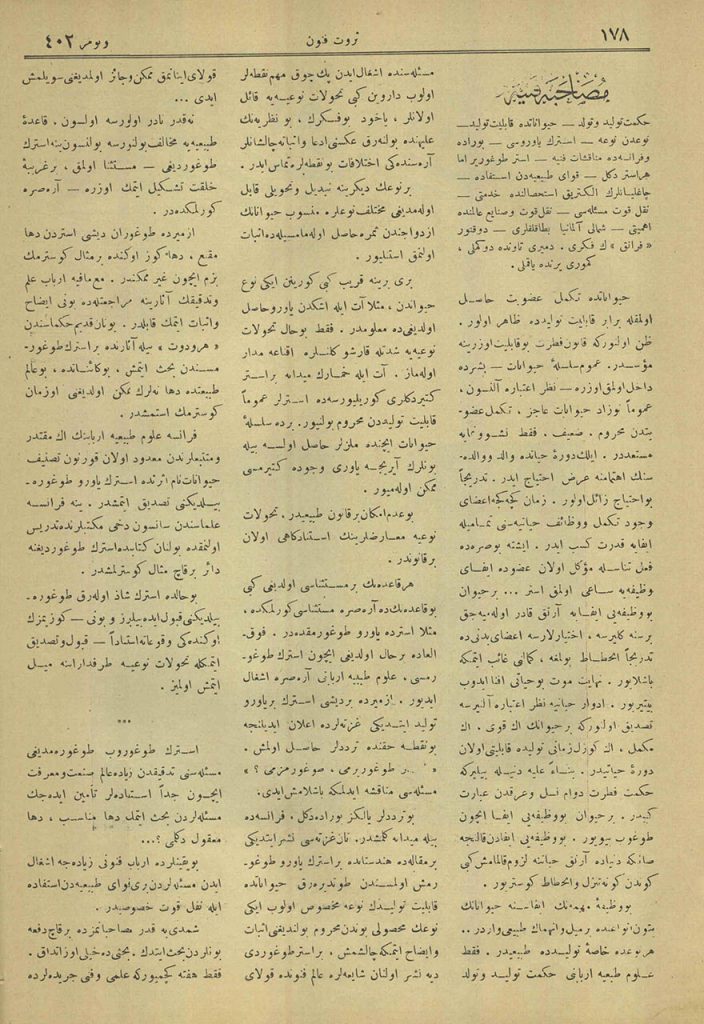 ١٧٨
ثروت فنون
ونومرو ٤٠٢
مصاحبهٔ فنیه
حکمت تولید و تولد — حیواناتده قابلیت تولید —
نوعدن نوعه — استرك یاوروسی — بوراده
وفرانسه‌ده مناقشات فنیه — استر طوغوریر اما
هر استر دکل — قوای طبیعیه‌دن استفاده —
چاغلیانلرك الکتریق استحصالنده خدمتی —
نقل قوت مسئله‌سی — نقل قوت وصنایع عالمنده
اهمیتی — شمالی آلمانیا بطاقلقلری — دوقتور
« فرانق » ك فکری . دمیری تاوننده دوکملی ،
کموری یرنده یاقملی .
حیواناتده تکمل عضویت حاصل
اولمقله برابر قابلیت تولیدده ظاهر اولور .
ظن اولنورکه قانون فطرت بو قابلیت اوزرینه
مؤسسدر. عموم سلسلهٔ حیوانات — بشرده
داخل اولمق اوزره — نظر اعتباره آلنسون ،
عموماً نوزاد حیوانات عاجز ، تکمل عضو-
یتدن محروم . ضعیف . فقط نشو ونمایه
مستعددر . ایلك دورهٔ حیاتده والد ووالده-
سنك اهتمامنه عرض احتیاج ایدر . تدریجاً
بو احتیاج زائل اولور . زمان کچدکجه اعضای
وجود تکمل ووظائف حیاتیه‌سنی تمامیله
ایفایه قدرت کسب ایدر . ایشته بو صره‌ده
فعل تناسله مؤکل اولان عضوده ایفای
وظیفه‌یه ساعی اولمق استر ... بر حیوان
بو وظیفه‌یی ایفایه آرتق قادر اوله‌میه‌جق
بر سنه کلیرسه ، اختیارلارسه اعضای بدنی‌ده
تدریجاً انحطاط بولمغه ، کمالنی غائب ایتمکه
باشلایور . نهایت موت بو حیاتی افنا ایدوب
بیتیریور . ادوار حیاتیه نظر اعتباره آلنیرسه
تصدیق اولنورکه بر حیوانك اك قوی . اك
مکمل ، اك کوزل زمانی تولیده قابلیتی اولان
دورهٔ حیاتیدر . بناءً علیه دنیله بیلیرکه
حکمت فطرت دوام نسل وعرقدن عبارت
کبیدر . بر حیوان بو وظیفه‌یی ایفا ایچون
طوغوب بیویور . بو وظیفه‌یی ایفادن قالنجه
صانکه دنیاده آرتق حیاتنه لزوم قالمامش کبی
کوندن کونه تنزل وانحطاط کوستریور .
بو وظیفهٔ مهمه‌نك ایفاسنه حیواناتك
بتون انواعنده بر میل وانهماك طبیعی واردر ..
هر نوعده خاصهٔ تولیدده طبیعیدر . فقط
علوم طبیعیه اربابی حکمت تولید وتولد
مسئله‌سنده اشغال ایدن پك چوق مهم نقطه‌لر
اولوب داروین کبی تحولات نوعیه‌یه قائل
اولانلر ، یاخود بو فکرك ، بو نظریه‌نك
علیهنده بوله‌رق عکسنی ادعا واثباته چالشانلر
آره‌سنده‌کی اختلافات بو نقطه‌لره تماس ایدر .
بر نوعك دیکرینه تبدیل وتحویلی قابل
اوله‌مدیغی مختلف نوعلره منسوب حیواناتك
ازدواجندن ثمره حاصل اوله‌مامسیله‌ده اثبات
اولنمق استنلیور .
بری برینه قریب کبی کورینن ایکی نوع
حیواندن ، مثلا آت ایله اشکدن یاورو حاصل
اولدیغی‌ده معلومدر . فقط بو حال تحولات
نوعیه‌یه شدتله قارشو کلنلره اقناعه مدار
اوله‌ماز . آت ایله خمارك میدانه بر استر
کتیردکلری کوریلیورسه‌ده استرلر عموماً
قابلیت تولیددن محروم بولنیور . برده سلسلهٔ
حیوانات ایچنده ملزلر حاصل اولسه بیله
بونلرك آیریجه یاوری وجوده کتیرمسی
ممکن اوله‌میور .
بو عدم امکان بر قانون طبیعیدر . تحولات
نوعیه معارضلرینك استنادکاهی اولان
بر قانوندر .
هر قاعده‌نك بر مستثناسی اولدیغی کبی
بو قاعده‌نك‌ده آره‌صره مستثناسی کورلمکده ،
مثلا استرده یاورو طوغورمقده‌در . فوق-
العاده بر حال اولدیغی ایچون استرك طوغو-
رمسی ، علوم طبیعیه اربابنی آره‌صره اشغال
ایدیور . ازمیرده بر دیشی استرك بر یاورو
تولید ایتدیکی غزته‌لرده اعلان ایدیلنجه
بو نقطه حقنده ترددلر حاصل اولمش .
طوغوریرمی ، طوغورمزمی ؟ »
مسئله‌سی مناقشه ایدلمکه باشلامش ایدی .
بو ترددلر یالکز بوراده دکل . فرانسه‌ده
بیله میدانه کلمشدر . تان غزته‌سی نشر ایتدیکی
بر مقاله‌ده هندستانده بر استرك یاورو طوغو-
رمش اولمسندن طوتدیره‌رق حیواناتده
قابلیت تولیدك نوعه مخصوص اولوب ایکی
نوعك محصولی بوندن محروم بولندیغنی اثبات
وایضاح ایتمکه چالشمش ، بر استر طوغوردی
دیه نشر اولنان شایعه‌لره عالم فنونده قولای
قولای اینانمق ممکن وجائز اولمدیغنی سویلمش
ایدی ...
نه‌قدر نادر اولورسه اولسون ، قاعدهٔ
طبیعیه‌یه مخالف بولنورسه بولنسون ینه استرك
طوغوردیغی — مستثنا اولمق ، بر غریبهٔ
خلقت تشکیل ایتمك اوزره — آره‌صره
کورلمکده‌در .
ازمیرده طوغوران دیشی استردن دها
مقنع ، دها کوز اوکنده بر مثال کوسترمك
بزم ایچون غیر ممکندر . مع‌مافیه ارباب علم
وتدقیقك آثارینه مراجعتله‌ده بونی ایضاح
واثبات ایتمك قابلدر . یونان قدیم حکماسندن
« هرودوت » بیله آثارنده بر استرك طوغور-
مسندن بحث ایتمش ، بو کائناتده ، بو عالم
طبیعتده دها نه‌لرك ممکن اولدیغنی او زمان
کوسترمك استمشدر .
فرانسه علوم طبیعیه اربابنك اك مقتدر
ومتتبعلرندن معدود اولان قورنون تصنیف
حیوانات نام اثرنده استرك یاورو طوغوره-
بیلدیکنی تصدیق ایتمشدر . ینه فرانسه
علماسندن سانسون دخی مکتبلرنده تدریس
اولنمقده بولنان کتابنده استرك طوغوردیغنه
دائر بر قاچ مثال کوسترلمشدر .
بو حالده استرك شاذ اوله‌رق طوغوره-
بیلدیکنی قبول ایده‌بیلیرز و بونی — کوزیمزك
اوکنده‌کی وقوعاته استناداً — قبول وتصدیق
ایتمکله تحولات نوعیه طرفدارلرینه میل
ایتمش اولمیز .
***
استرك طوغوروب طوغوره‌مدیغی
مسئله‌سنی تدقیقدن زیاده عالم صنعت ومعرفت
ایچون جداً استفاده‌لر تأمین ایده‌جك
مسئله‌لردن بحث ایتمك دها مناسب ، دها
معقول دکلمی ؟...
بو یقینلرده ارباب فنونی زیاده‌جه اشغال
ایدن مسئله‌لردن بری قوای طبیعیه‌دن استفاده
ایله نقل قوت خصوصیدر .
شمدی‌یه قدر مصاحباتمزده بر قاچ دفعه
بونلردن بحث ایتدك . بحثی‌ده خیلی اوزاتدق .
فقط هفته کچمیورکه علمی وفنی جریده‌لرده